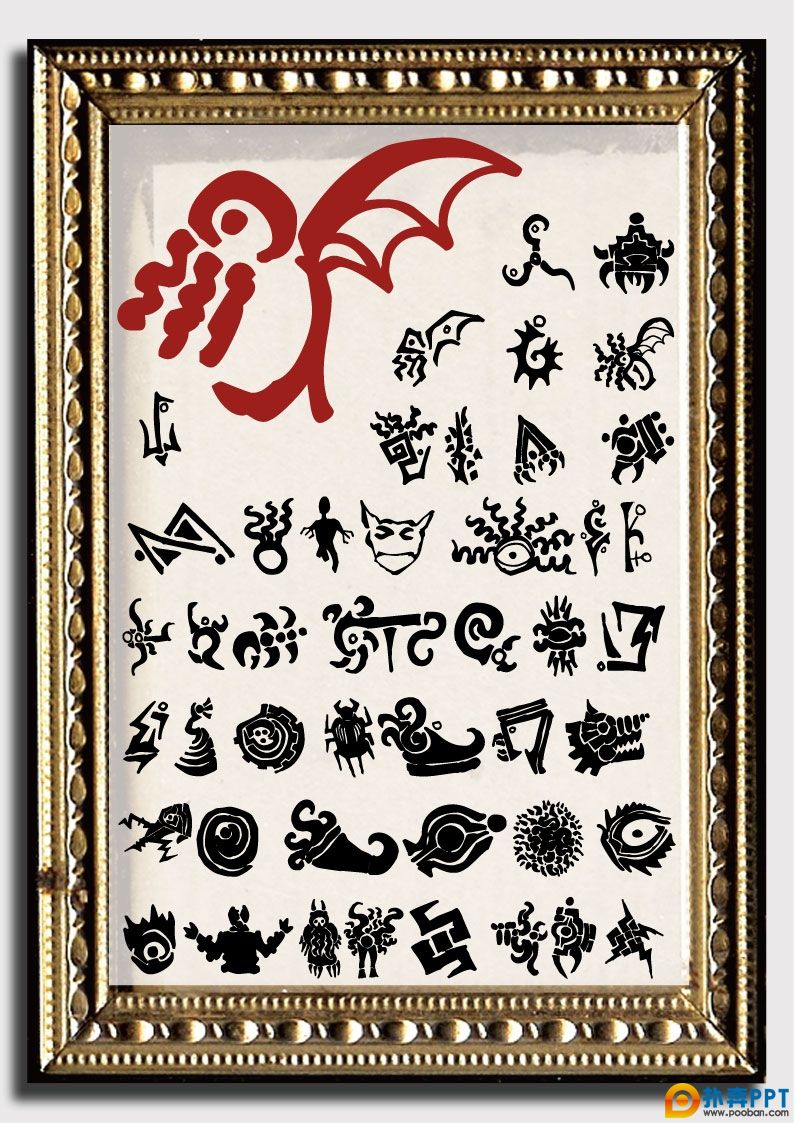 扑奔PPT
www.pooban.com